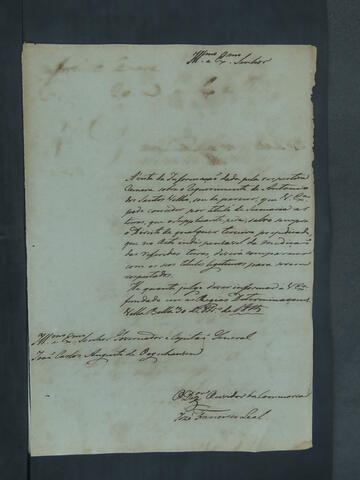 Illmo. e Exmo. Senhor
A vista da Informação dada pela respectiva
Camara sobre o Requerimento de Antonio
dos Santos Velho, sou de parecer, que V. Exa.
pode conceder por titulo de Sesmaria as
terras, que o Supplicante pede, salvo sempre
o Direito de qualquer terceiro prejudicado,
que no Acto indispensavel da medição
das referidas terras deverá comparecer
com os seus titulos legitimos, para serem
respeitados.
He quanto julgo dever informar a V. Exa.
fundado nas Regias Determinaçoens.
Villa Bella 30 de de
Illmo. e Exmo. Senhor Governador e Capitão General
João Carlos Augusto de Oeynhausen
O Dor. Ouvidor da Commarca
José Francisco Leal